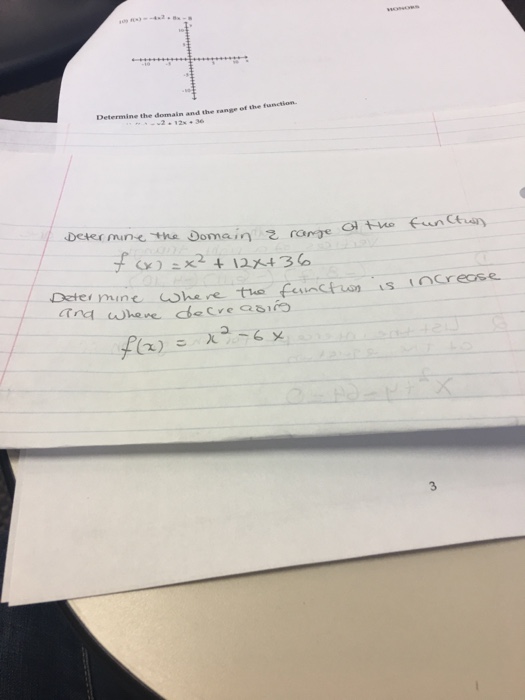 HONORS
f(x) = -4x² + 8x - 8
10
5
-10
-5
5
10
-5
-10
Determine the domain and the range of the function.
² + 12x + 36
Determine the Domain & range of the function
f(x) = x² + 12x + 36
Determine where the function is increase
and where decreasing
f(x) = x² - 6x
3